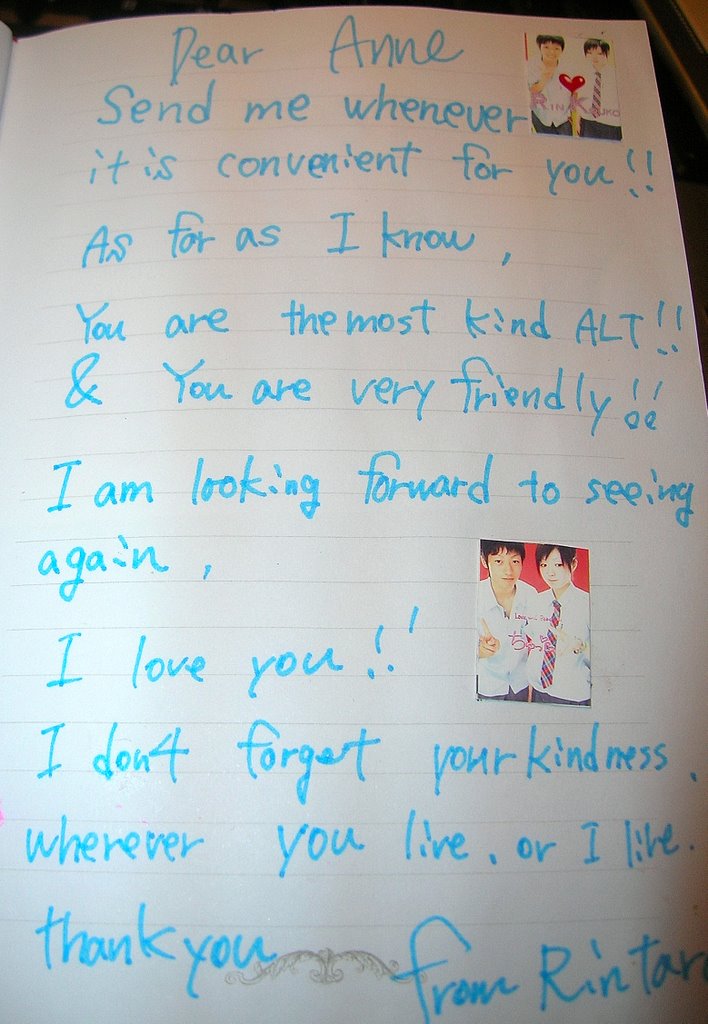 Dear Anne
Send me whenever
it is convenient for you!!
As far as I know,
You are the most kind ALT!!
& You are very friendly!!
I am looking forward to seeing
again,
I love you!!
I don4t forget your kindness.
wherever you live. or I live.
thank you
from Rintaro